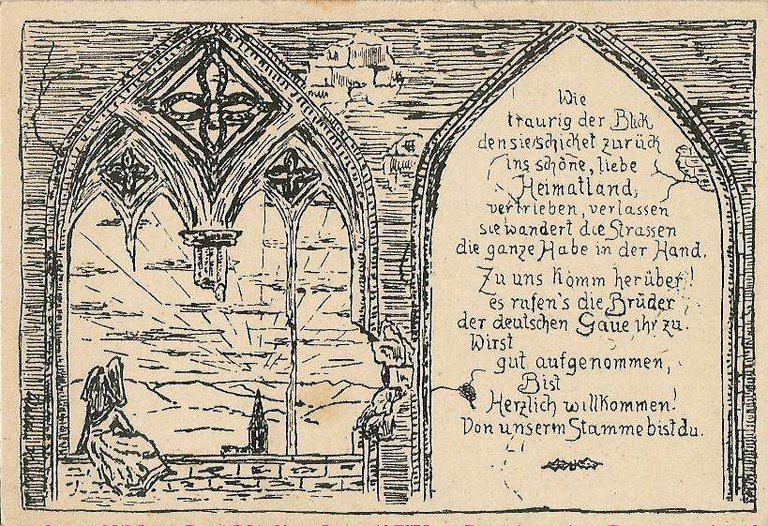 Wie
traurig der Blick
den sie schicket zurück
ins schöne, liebe
Heimatland,
vertrieben, verlassen
sie wandert die Strassen
die ganze Habe in der Hand.
Zu uns komm herüber!
es rufen's die Brüder
der deutschen Gaue ihr zu.
Wirst
gut aufgenommen,
Bist
Herzlich willkommen!
Von unserm Stamme bist du.